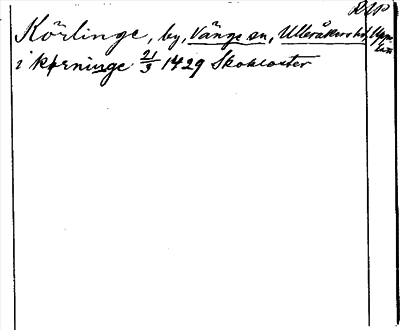 RAP
Körlinge, by, Vänge sn, Ulleråkers hd, Upps. län
i kørninge 21/3 1429 Skokloster